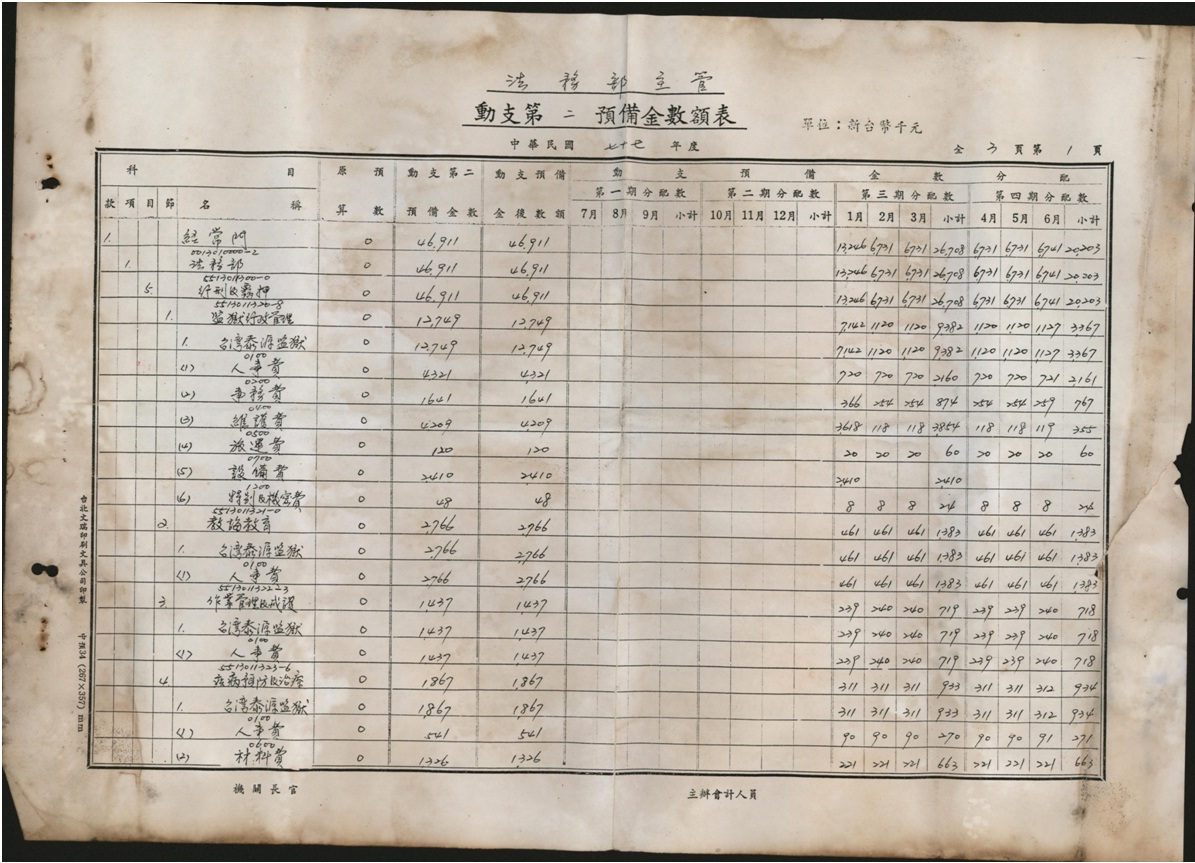 法務部主管
動支第二預備金數額表
單位：新台幣千元
中華民國 七十七 年度
全 3 頁第 1 頁
科 目 原預算數 動支第二預備金數 動支預備金後數額 動支預備金數分配
款 項 目 節 名稱 第一期分配數 第二期分配數 第三期分配數 第四期分配數
7月 8月 9月 小計 10月 11月 12月 小計 1月 2月 3月 小計 4月 5月 6月 小計
1. 経常門 0 46,911 46,911 13,246 6731 6,731 26,708 6731 6,731 6,741 20,203
0013010000-2
1. 法務部 0 46,911 46,911 13,246 6731 6,731 26,708 6731 6,731 6,741 20,203
5513011300-0
5. 行刑及羈押 0 46,911 46,911 13,246 6731 6,731 26,708 6731 6,731 6,741 20,203
5513011320-8
1. 監獄行政管理 0 12,749 12,749 7,142 1120 1120 9382 1120 1,120 1127 3,367
1. 台湾泰源監獄 0 12,749 12,749 7,142 1120 1120 9,382 1120 1,120 1127 3367
0100
(1) 人事費 0 4321 4,321 720 720 720 2160 720 720 721 2,161
0200
(2) 事務費 0 1641 1,641 366 254 254 874 254 254 259 767
0400
(3) 維護費 0 4209 4,209 3618 118 118 3,854 118 118 119 355
0500
(4) 旅運費 0 120 120 20 20 20 60 20 20 20 60
0700
(5) 設備費 0 2,410 2,410 2,410 2,410
1200
(6) 特別及機密費 0 48 48 8 8 8 24 8 8 8 24
5513011321-0
2. 教誨教育 0 2,766 2,766 461 461 461 1,383 461 461 461 1,383
1. 台湾泰源監獄 0 2,766 2,766 461 461 461 1,383 461 461 461 1,383
0100
(1) 人事費 0 2766 2,766 461 461 461 1383 461 461 461 1,383
551301132223
3. 作業管理及戒護 0 1437 1,437 239 240 240 719 239 239 240 718
1. 台湾泰源監獄 0 1437 1437 239 240 240 719 239 239 240 718
0100
(1) 人事費 0 1437 1437 239 240 240 719 239 239 240 718
5513011323-6
4. 疾病預防及治療 0 1,867 1,867 311 311 311 933 311 311 312 934
1. 台湾泰源監獄 0 1,867 1,867 311 311 311 933 311 311 312 934
0100
(1) 人事費 0 541 541 90 90 90 270 90 90 91 271
0600
(2) 材料費 0 1326 1,326 221 221 221 663 221 221 221 663
機關長官 主辦會計人員
台北文瑞印刷文具公司印製
(267×357) mm